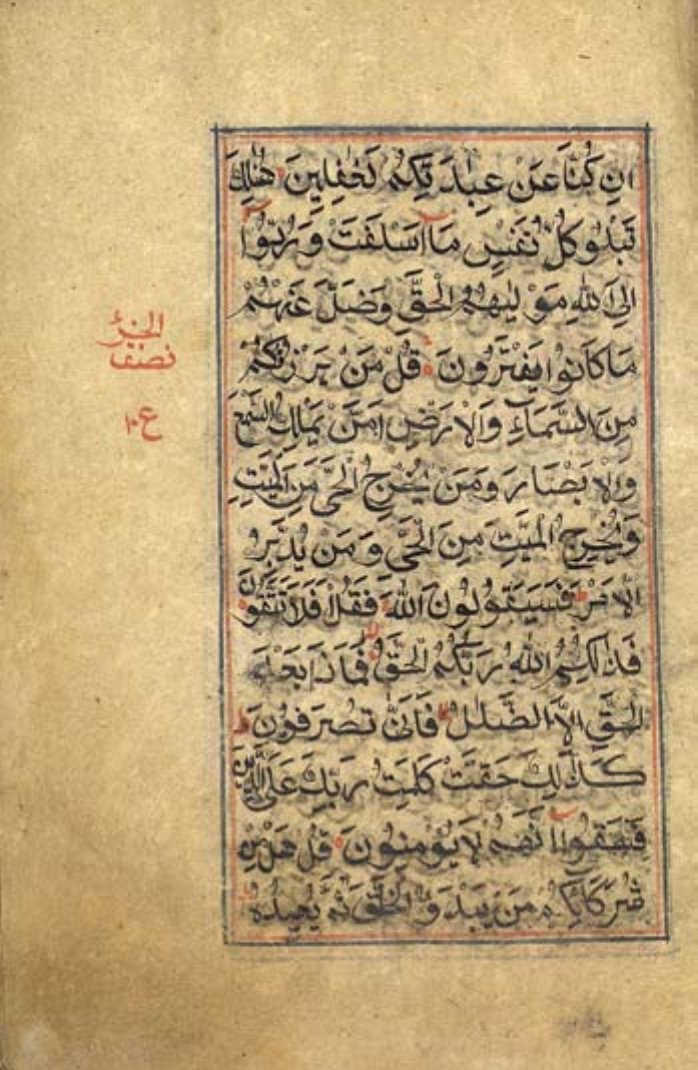 اِنْ كُنَّا عَنْ عِبَادَتِكُمْ لَغٰفِلِينَ هُنَالِكَ
تَبْلُو كُلُّ نَفْسٍ مَّا اَسْلَفَتْ وَرُدُّوا
اِلَى اللهِ مَوْلٰيهُمُ الْحَقِّ وَضَلَّ عَنْهُمْ
مَا كَانُوا يَفْتَرُونَ قُلْ مَنْ يَرْزُقُكُمْ
مِنَ السَّمَاءِ وَالْاَرْضِ اَمَّنْ يَمْلِكُ السَّمْعَ
وَالْاَبْصَارَ وَمَنْ يُخْرِجُ الْحَيَّ مِنَ الْمَيِّتِ
وَيُخْرِجُ الْمَيِّتَ مِنَ الْحَيِّ وَمَنْ يُدَبِّرُ
الْاَمْرَ فَسَيَقُولُونَ اللهُ فَقُلْ اَفَلَا تَتَّقُونَ
فَذٰلِكُمُ اللهُ رَبُّكُمُ الْحَقُّ فَمَاذَا بَعْدَ
الْحَقِّ اِلَّا الضَّلٰلُ فَاَنّٰى تُصْرَفُونَ
كَذٰلِكَ حَقَّتْ كَلِمَتُ رَبِّكَ عَلَى الَّذِينَ
فَسَقُوا اَنَّهُمْ لَا يُؤْمِنُونَ قُلْ هَلْ مِنْ
شُرَكَائِكُمْ مَنْ يَبْدَؤُا الْخَلْقَ ثُمَّ يُعِيدُهُ
الجزء
نصف
ع١٠